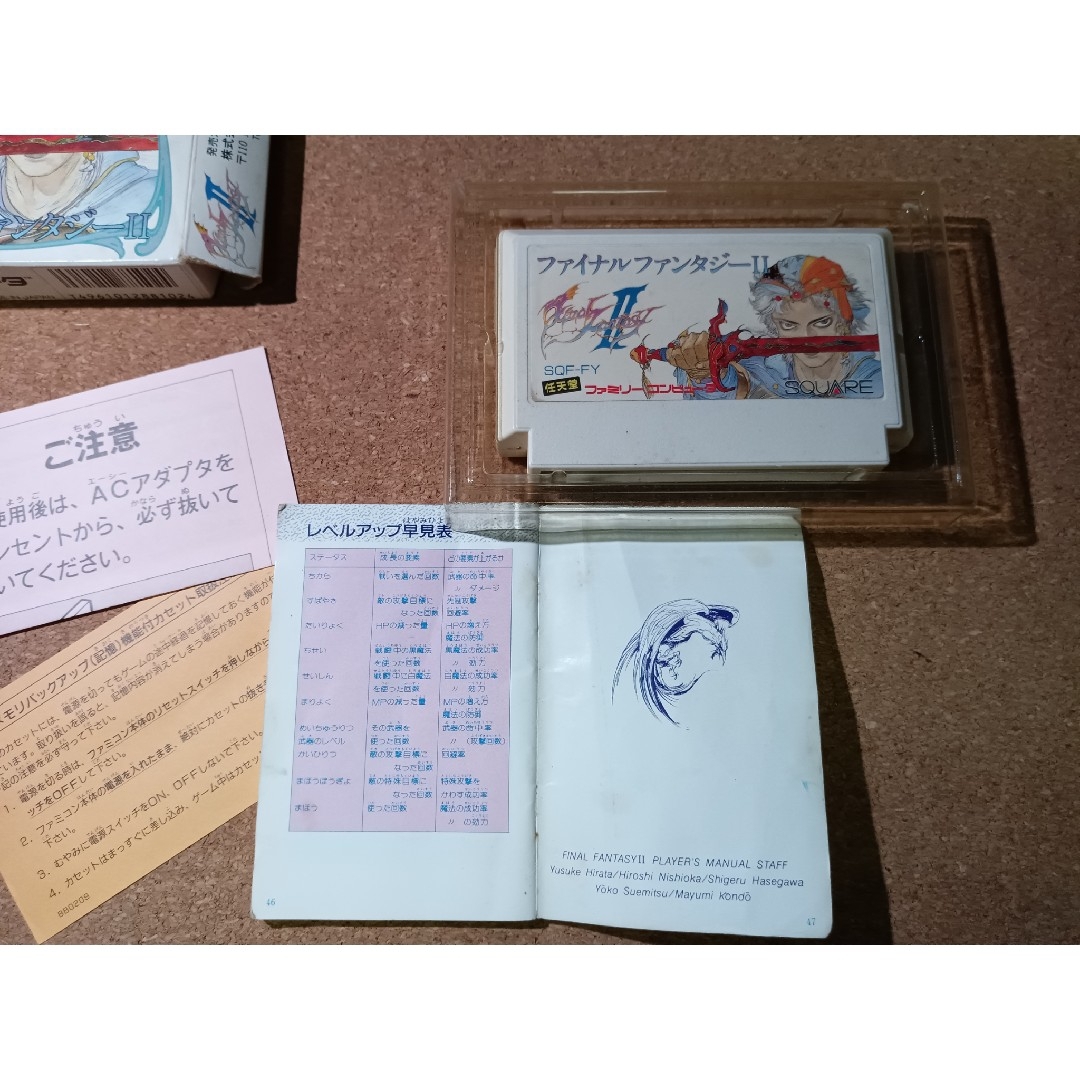 発売
株式
〒110
ァンタジーII
II
4961012881024
ファイナルファンタジーII
Final Fantasy II
SQF-FY
任天堂 ファミリーコンピュータ
SQUARE
ちゅう い
ご注意
使用後は、ACアダプタを
ンセントから、必ず抜いて
いてください。
モリバックアップ(記憶)機能付カセット取扱
のカセットには、電源を切ってもゲームの途中経過を記憶しておく機能が
います。取り扱いを誤ると、記憶内容が消えてしまう場合がありますので
記の注意を必ず守って下さい。
1. 電源を切る時は、ファミコン本体のリセットスイッチを押しながら
ッチをOFFして下さい。
2. ファミコン本体の電源を入れたまま、絶対にカセットの抜き
下さい。
3. むやみに電源スイッチをON、OFFしないで下さい。
4. カセットはまっすぐに差し込み、ゲーム中はカセット
880208
はやみひょう
レベルアップ早見表
ステータス 成長の要素 どの要素が上がるか
ちから 戦いを選んだ回数 武器の命中率
〃 ダメージ
すばやさ 敵の攻撃目標に 先制攻撃
なった回数 回避率
たいりょく HPの減った量 HPの増え方
魔法の防御
ちせい 戦闘中の黒魔法 黒魔法の成功率
を使った回数 〃 効力
せいしん 戦闘中に白魔法 白魔法の成功率
を使った回数 〃 効力
まりょく MPの減った量 MPの増え方
魔法の防御
めいちゅうりつ その武器を 武器の命中率
武器のレベル 使った回数 〃 (攻撃回数)
かいひりつ 敵の攻撃目標に 回避率
なった回数
まほうぼうぎょ 敵の特殊目標に 特殊攻撃を
なった回数 かわす成功率
まほう 使った回数 魔法の成功率
〃 の効力
46
FINAL FANTASYII PLAYER'S MANUAL STAFF
Yusuke Hirata/Hiroshi Nishioka/Shigeru Hasegawa
Yōko Suemitsu/Mayumi Kondō
47